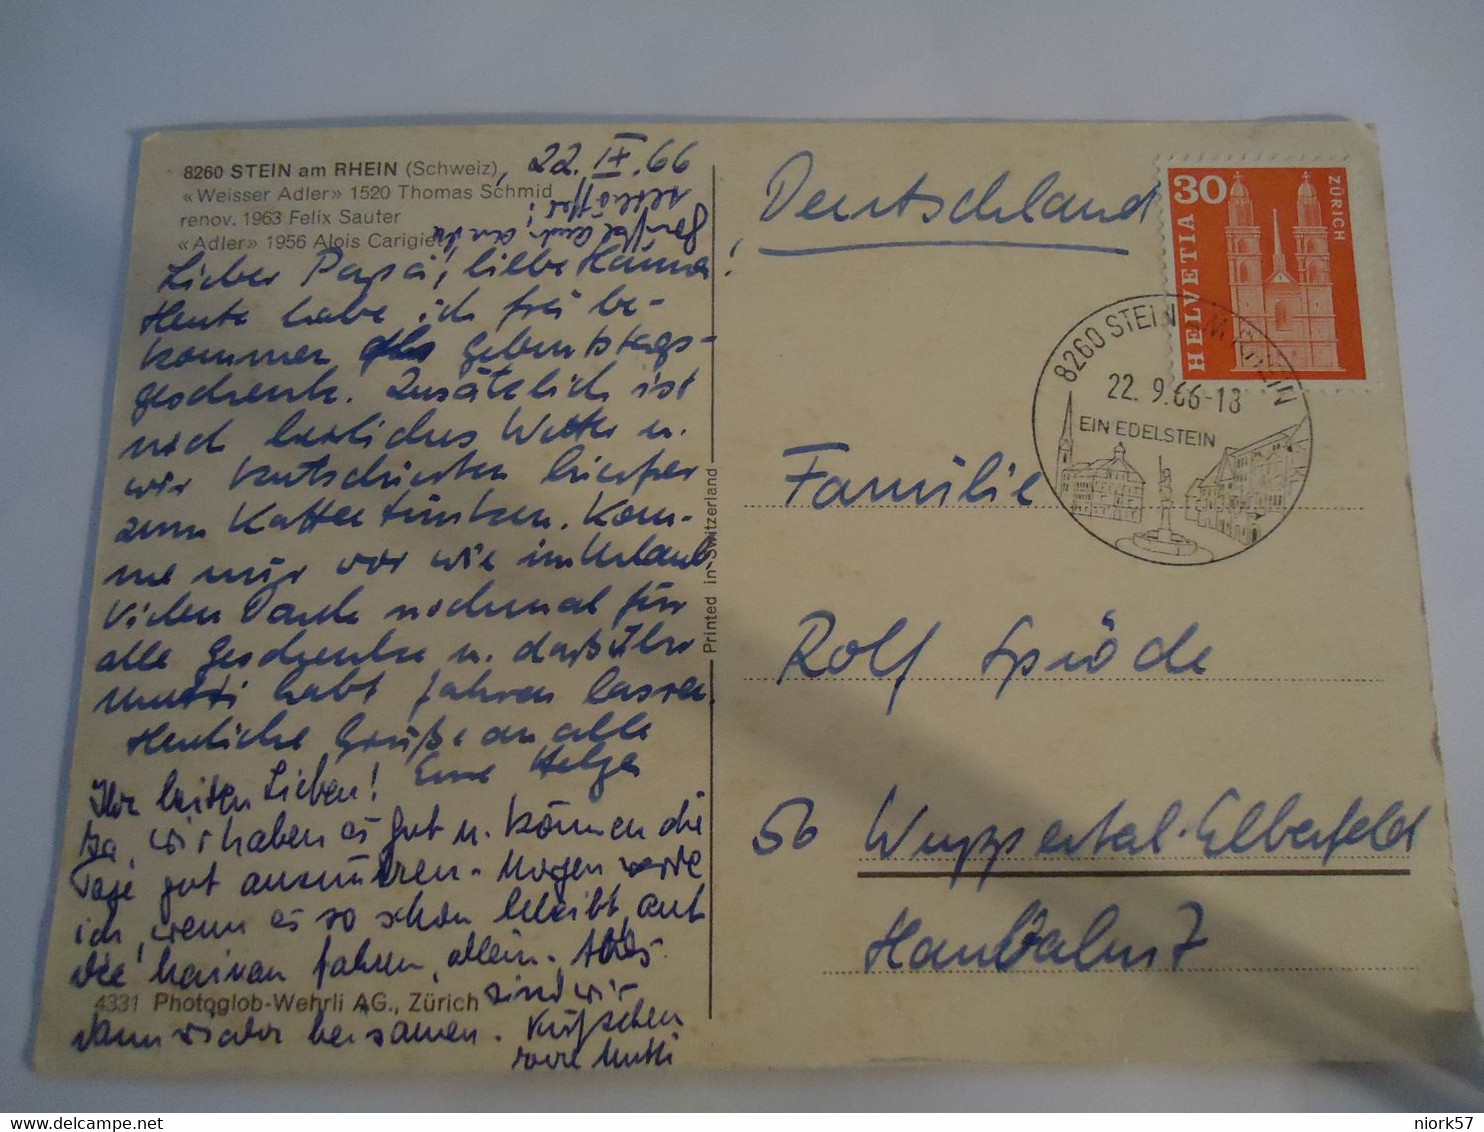 8260 STEIN am RHEIN (Schweiz), 22. IX. 66
«Weisser Adler» 1520 Thomas Schmid
renov. 1963 Felix Sauter
«Adler» 1956 Alois Carigiet
Grüße auch an
Lieber Papa, liebe Hanna!
Heute habe ich frei be-
kommen als Geburtstags-
geschenk. Zusätzlich ist
noch herrliches Wetter u.
wir kutschierten hierher
zum Kaffeetrinken. Kom-
me mir vor wie im Urlaub
Vielen Dank nochmal für
alle Geschenke u. daß Ihr
Mutti habt fahren lassen.
Herzliche Grüße an alle
Eure Helga
Ihr beiden Lieben!
Ja, wir haben es gut u. können die
Tage gut ausnützen. Morgen werde
ich, wenn es so schön bleibt, auf
die fahren, allein. Abds.
sind wir
dann wieder beisammen. Küßchen
Eure Mutti
4331 Photoglob-Wehrli AG., Zürich
Printed in Switzerland
Deutschland
30
ZÜRICH
HELVETIA
8260 STEIN AM RHEIN
22. 9. 66-18
EIN EDELSTEIN
Familie
Rolf Spröde
56 Wuppertal-Elberfeld
7
niork57